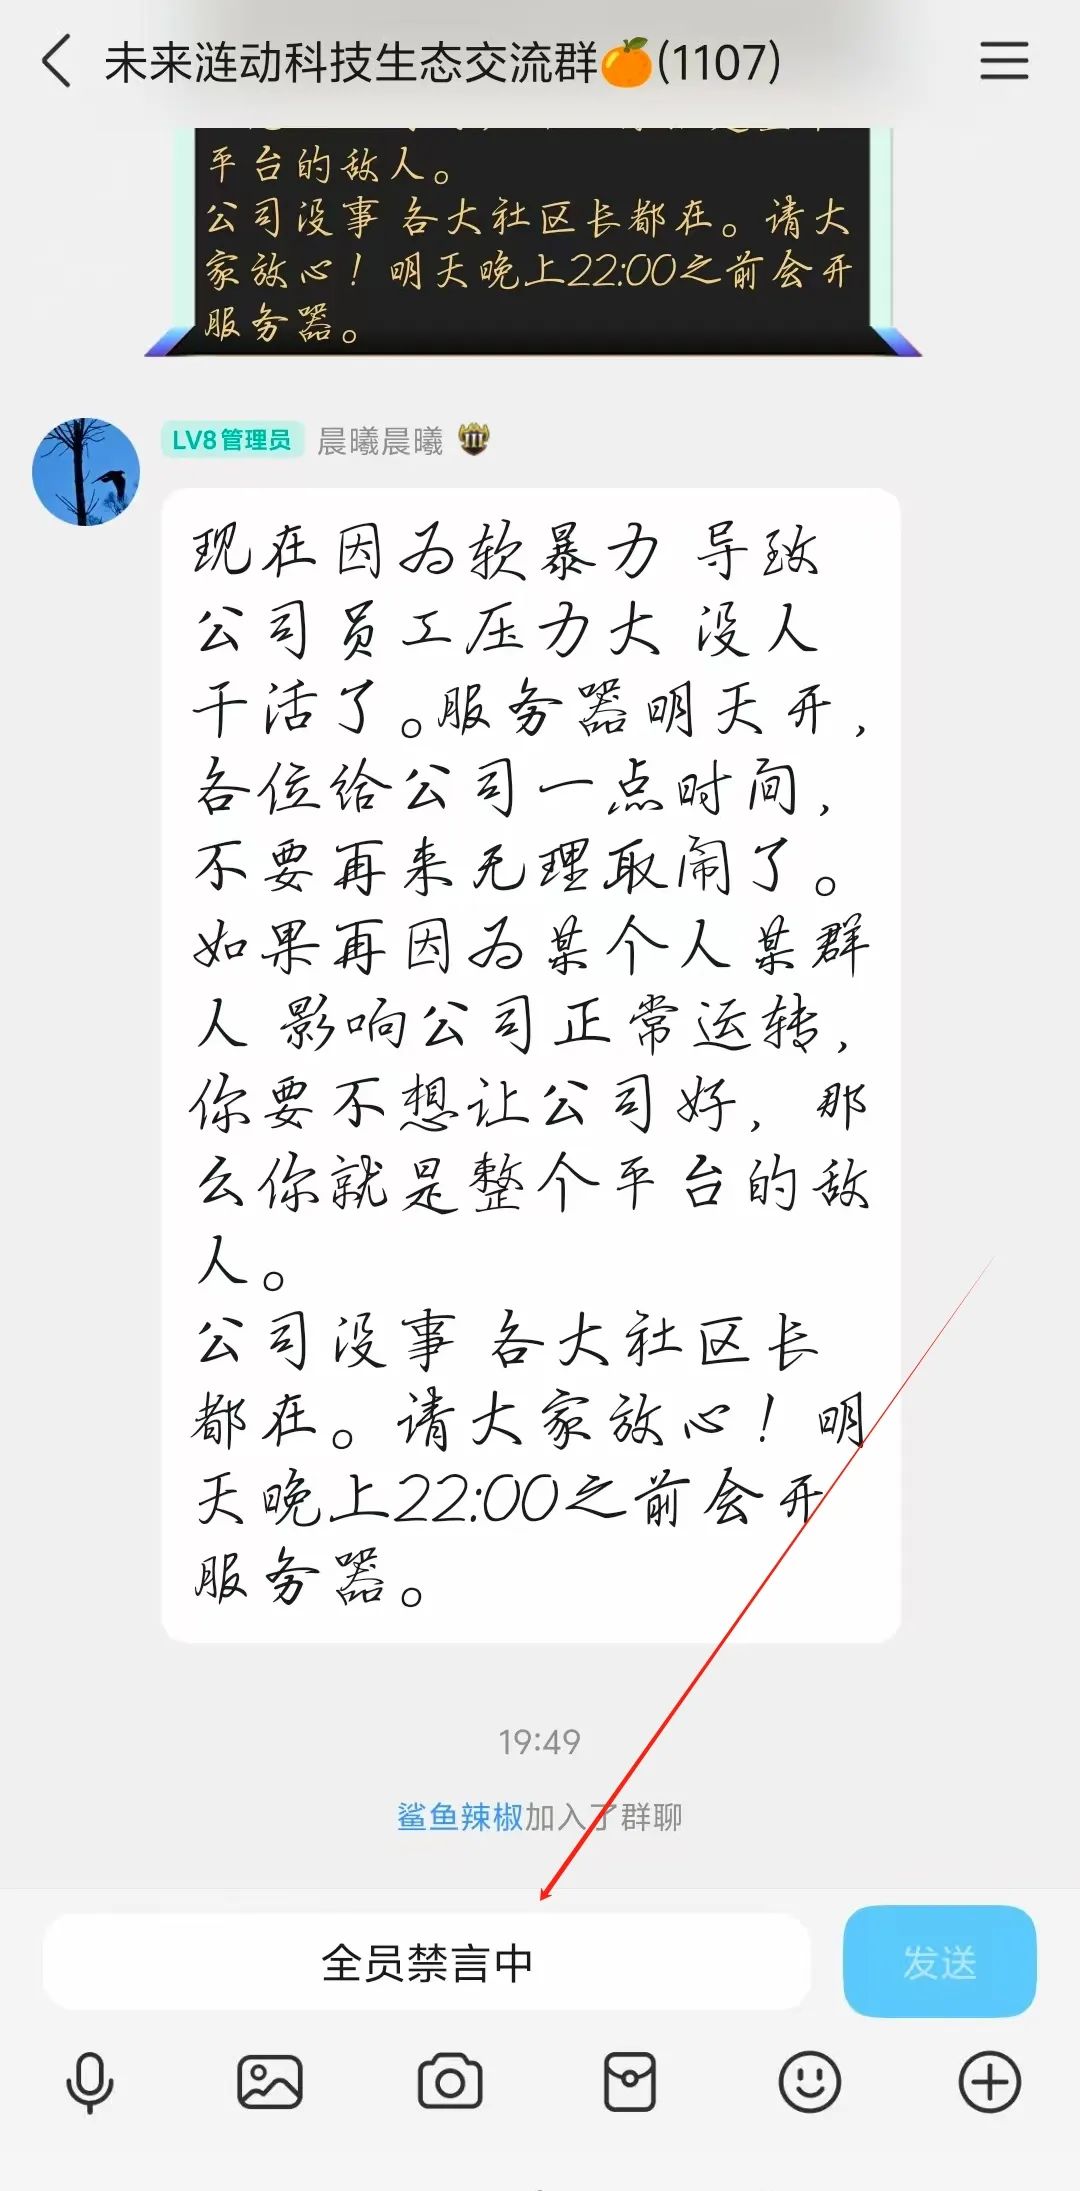 未来涟动科技生态交流群🍊(1107)
平台的敌人。
公司没事 各大社区长都在。请大
家放心！明天晚上22:00之前会开
服务器。
LV8管理员 晨曦晨曦
现在因为软暴力 导致
公司员工压力大 没人
干活了。服务器明天开，
各位给公司一点时间，
不要再来无理取闹了。
如果再因为某个人某群
人 影响公司正常运转，
你要不想让公司好，那
么你就是整个平台的敌
人。
公司没事 各大社区长
都在。请大家放心！明
天晚上22:00之前会开
服务器。
19:49
鲨鱼辣椒加入了群聊
全员禁言中
发送